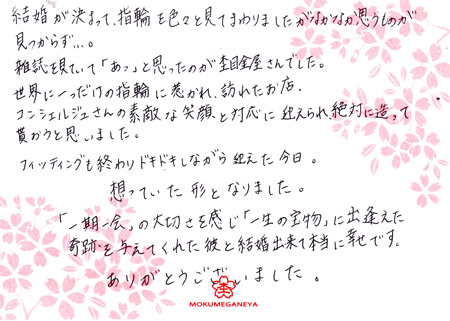 結婚が決まって、指輪を色々と見てまわりましたがなかなか思うものが
見つからず…。
雑誌を見ていて「あっ」と思ったのが杢目金屋さんでした。
世界に一つだけの指輪に惹かれ、訪れたお店.
コンシェルジュさんの素敵な笑顔と対応に迎えられ絶対に造って
貰おうと思いました。
フィッティングも終わりドキドキしながら迎えた今日。
想っていた形となりました。
「一期一会」の大切さを感じ「一生の宝物」に出逢えた
奇跡を与えてくれた彼と結婚出来て本当に幸せです。
ありがとうございました。
MOKUMEGANEYA